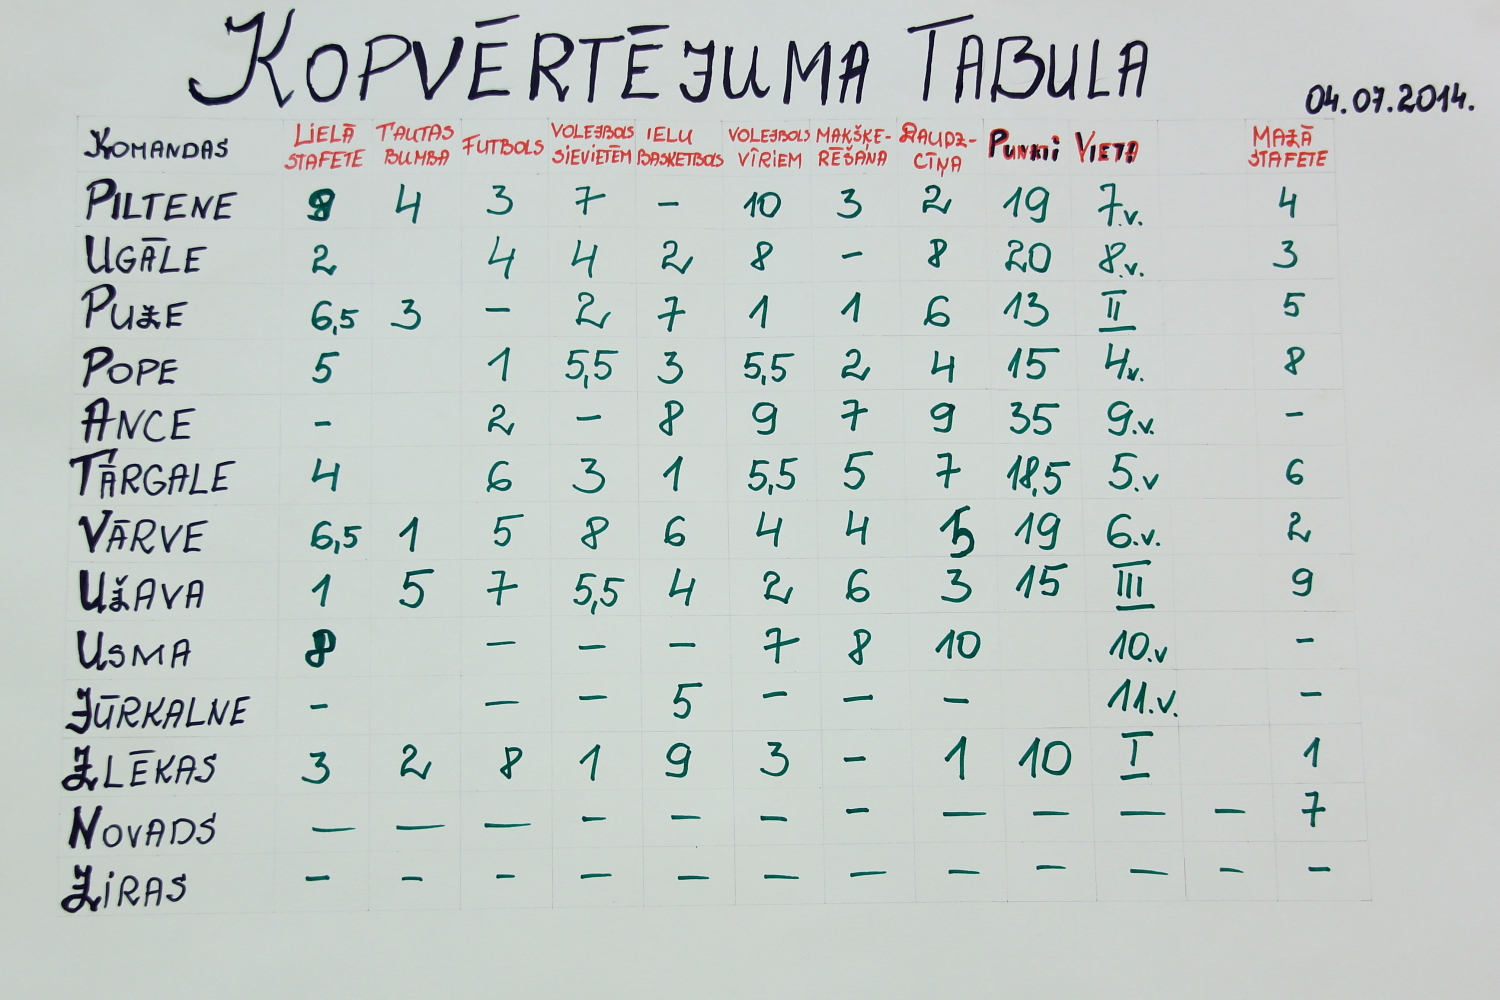 KOPVĒRTĒJUMA TABULA
04.07.2014.
KOMANDAS LIELĀ STAFETE TAUTAS BUMBA FUTBOLS VOLEJBOLS SIEVIETĒM IELU BASKETBOLS VOLEJBOLS VĪRIEM MAKŠĶERĒŠANA DAUDZCĪŅA PUNKTI VIETA MAZĀ STAFETE
PILTENE 8 4 3 7 - 10 3 2 19 7.v. 4
UGĀLE 2 4 4 2 8 - 8 20 8.v. 3
PUZE 6,5 3 - 2 7 1 1 6 13 II 5
POPE 5 1 5,5 3 5,5 2 4 15 4.v. 8
ANCE - 2 - 8 9 7 9 35 9.v. -
TĀRGALE 4 6 3 1 5,5 5 7 18,5 5.v 6
VĀRVE 6,5 1 5 8 6 4 4 5 19 6.v. 2
UŽAVA 1 5 7 5,5 4 2 6 3 15 III 9
USMA 8 - - - 7 8 10 10.v -
JŪRKALNE - - - 5 - - - 11.v. -
ZLĒKAS 3 2 8 1 9 3 - 1 10 I 1
NOVADS - - - - - - - - - - - 7
ZIRAS - - - - - - - - - - - -